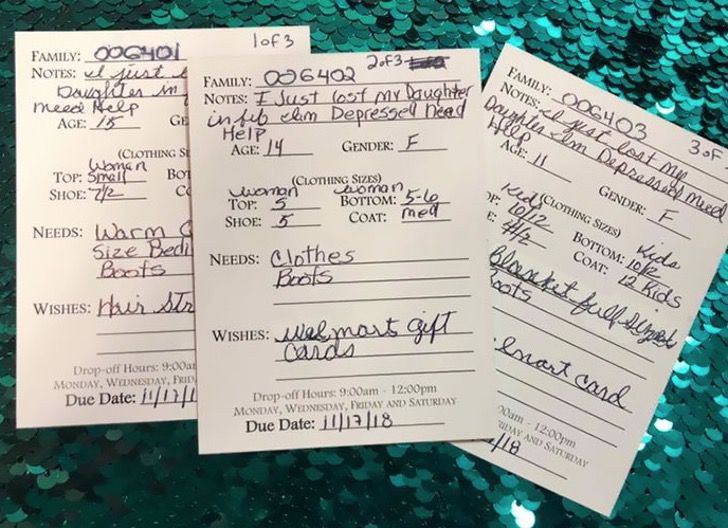 1 of 3
FAMILY: 006401
NOTES: I just
Daughter in
need Help
AGE: 15 GE
(CLOTHING SI
Woman
TOP: Small BOT
SHOE: 7 1/2 C
NEEDS: Warm
Size Bedi
Boots
WISHES: Hair Str
Drop-off Hours: 9:00a
MONDAY, WEDNESDAY, FRID
Due Date: 11/17/1
2 of 3
FAMILY: 006402
NOTES: I Just lost my Daughter
in feb I'm Depressed need
HelP
AGE: 14 GENDER: F
(CLOTHING SIZES)
woman woman
TOP: 5 BOTTOM: 5-6
SHOE: 5 COAT: med
NEEDS: Clothes
Boots
WISHES: Walmart gift
Cards
Drop-off Hours: 9:00am - 12:00pm
MONDAY, WEDNESDAY, FRIDAY AND SATURDAY
Due Date: 11/17/18
3 of
FAMILY: 006403
NOTES: I just lost my
Daughter I'm Depressed need
Help
AGE: 11 GENDER: F
(CLOTHING SIZES)
Kids Kids
OP: 10/12 BOTTOM: 10/12
E: COAT: 12 Kids
Blanket full size
Boots
lmart card
00am - 12:00pm
IDAY AND SATURDAY
/18